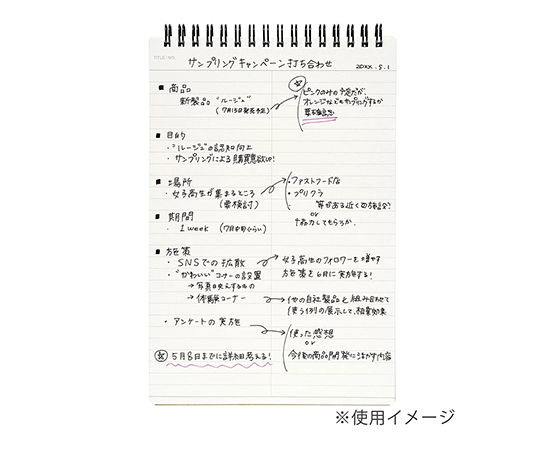 TITLE・NO.
サンプリングキャンペーン打ち合わせ 20XX.5.1
■ 商品
新製品 "ルージュ"
(7月15日発売予定)
☆
ピンクのみの予定だが、
オレンジなどもサンプリングするか
要確認
■ 目的
・"ルージュ"の認知向上
・サンプリングによる購買意欲UP!
■ 場所
・女子高生が集まるところ
(要検討)
・ファストフード店
・プリクラ
等がある近くの施設?
or
協力してもらうか。
■ 期間
・1week (7月中旬ぐらい)
■ 施策
・SNSでの拡散
女子高生のフォロワーを増やす
施策を6月に実施する!
・"かわいい"コーナーの設置
→写真映えするもの
→体験コーナー
他の自社製品と組み合わせて
使う例の展示して、相乗効果
・アンケートの実施
使った感想
or
今後の商品開発に活かす内容
☆ 5月8日までに詳細考える!
※使用イメージ